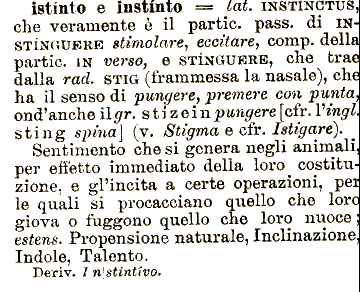 istinto e instínto = lat. INSTÍNCTUS,
che veramente è il partic. pass. di IN-
STÍNGUERE stimolare, eccitare, comp. della
partic. IN verso, e STÍNGUERE, che trae
dalla rad. STIG (frammessa la nasale), che
ha il senso di pungere, premere con punta,
ond'anche il gr. stizein pungere [cfr. l'ingl.
sting spina] (v. Stigma e cfr. Istigare).
Sentimento che si genera negli animali,
per effetto immediato della loro costitu-
zione, e gl'incita a certe operazioni, per
le quali si procacciano quello che loro
giova o fuggono quello che loro nuoce;
estens. Propensione naturale, Inclinazione,
Indole, Talento.
Deriv. Instintívo.